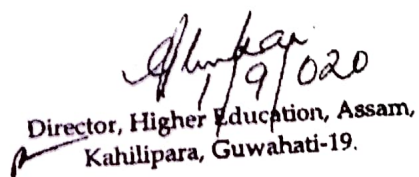 1/9/020
Director, Higher Education, Assam,
Kahilipara, Guwahati-19.